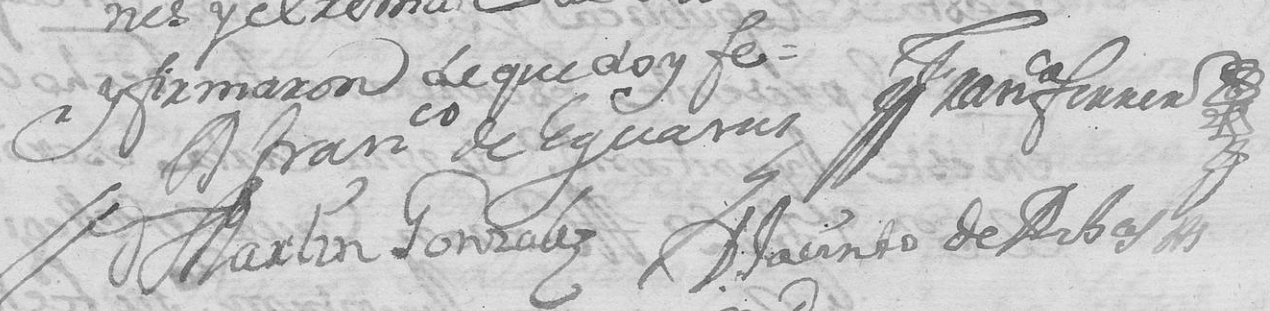 nes y el
y firmaron de que doy fe =
Fran^co de Eguaras Fran^ca ferrer
Martin Gonzalez Jacinto de Ribas